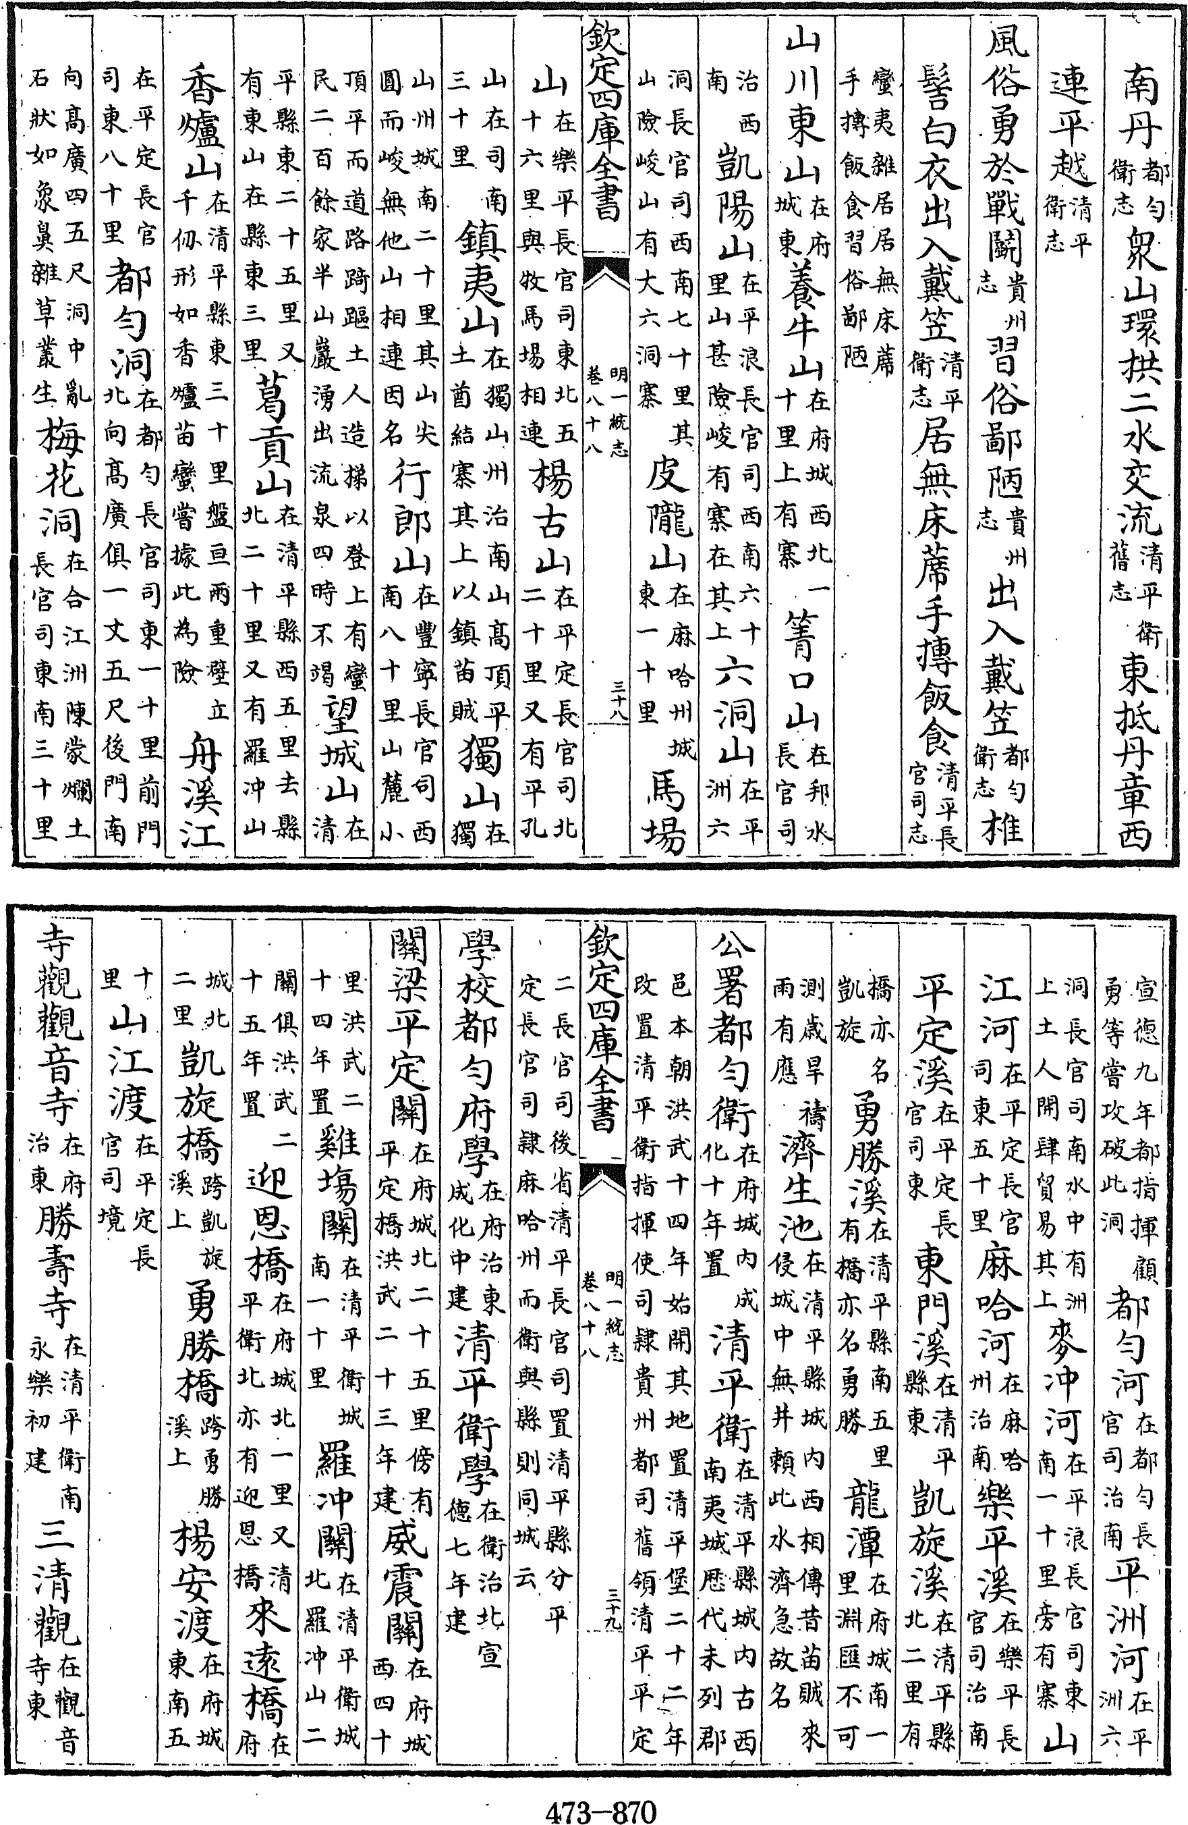 南丹都勻衛志衆山環拱二水交流清平衛舊志東抵丹章西
連平越清平衛志
風俗勇於戰鬭貴州志習俗鄙陋貴州志出入戴笠都勻衛志椎
髻白衣出入戴笠清平衛志居無床蓆手摶飯食清平長官司志
蠻夷雜居居無床蓆手摶飯食習俗鄙陋
山川東山在府城東養牛山在府城西北一十里上有寨箐口山在邦水長官司
治西南凱陽山在平浪長官司西南六十里山甚險峻有寨在其上六洞山在平洲六
洞長官司西南七十里其山險峻山有大六洞寨皮隴山在麻哈州城東一十里馬場
欽定四庫全書 明一統志 卷八十八 三十八
山在樂平長官司東北五十六里與牧馬場相連楊古山在平定長官司北二十里又有平孔
山在司南三十里鎮夷山在獨山州治南山高頂平土酋結寨其上以鎮苗賊獨山在獨
山州城南二十里其山尖圓而峻無他山相連因名行郎山在豐寧長官司西南八十里山麓小
頂平而道路踦䠓土人造梯以登上有蠻民二百餘家半山巖湧出流泉四時不竭望城山在清
平縣東二十五里又有東山在縣東三里葛貢山在清平縣西五里去縣北二十里又有羅冲山
香爐山在清平縣東三十里盤亘兩重壁立千仞形如香爐苗蠻嘗據此為險舟溪江
在平定長官司東八十里都勻洞在都勻長官司東一十里前門北向高廣俱一丈五尺後門南
向高廣四五尺洞中亂石狀如象鼻雜草叢生梅花洞在合江洲陳蒙爛土長官司東南三十里
宣德九年都指揮顧勇等嘗攻破此洞都勻河在都勻長官司治南平洲河在平洲六
洞長官司南水中有洲上土人開肆貿易其上麥冲河在平浪長官司東南一十里旁有寨山
江河在平定長官司東五十里麻哈河在麻哈州治南樂平溪在樂平長官司治南
平定溪在平定長官司東東門溪在清平縣東凱旋溪在清平縣北二里有
橋亦名凱旋勇勝溪在清平縣南五里有橋亦名勇勝龍潭在府城南一里淵匯不可
測歲旱禱雨有應濟生池在清平縣城內西相傳昔苗賊來侵城中無井賴此水濟急故名
公署都勻衛在府城內成化十年置清平衛在清平縣城內古西南夷城歷代未列郡
邑本朝洪武十四年始開其地置清平堡二十二年改置清平衛指揮使司隸貴州都司舊領清平平定
欽定四庫全書 明一統志 卷八十八 三十九
二長官司後省清平長官司置清平縣分平定長官司隸麻哈州而衛與縣則同城云
學校都勻府學在府治東成化中建清平衛學在衛治北宣德七年建
關梁平定關在府城北二十五里傍有平定橋洪武二十三年建威震關在府城西四十
里洪武二十四年置雞場關在清平衛城南一十里羅冲關在清平衛城北羅冲山二
關俱洪武二十五年置迎恩橋在府城北一里又清平衛北亦有迎恩橋來遠橋在府
城北二里凱旋橋跨凱旋溪上勇勝橋跨勇勝溪上楊安渡在府城東南五
十里山江渡在平定長官司境
寺觀觀音寺在府治東勝壽寺在清平衛南永樂初建三清觀在觀音寺東
473-870